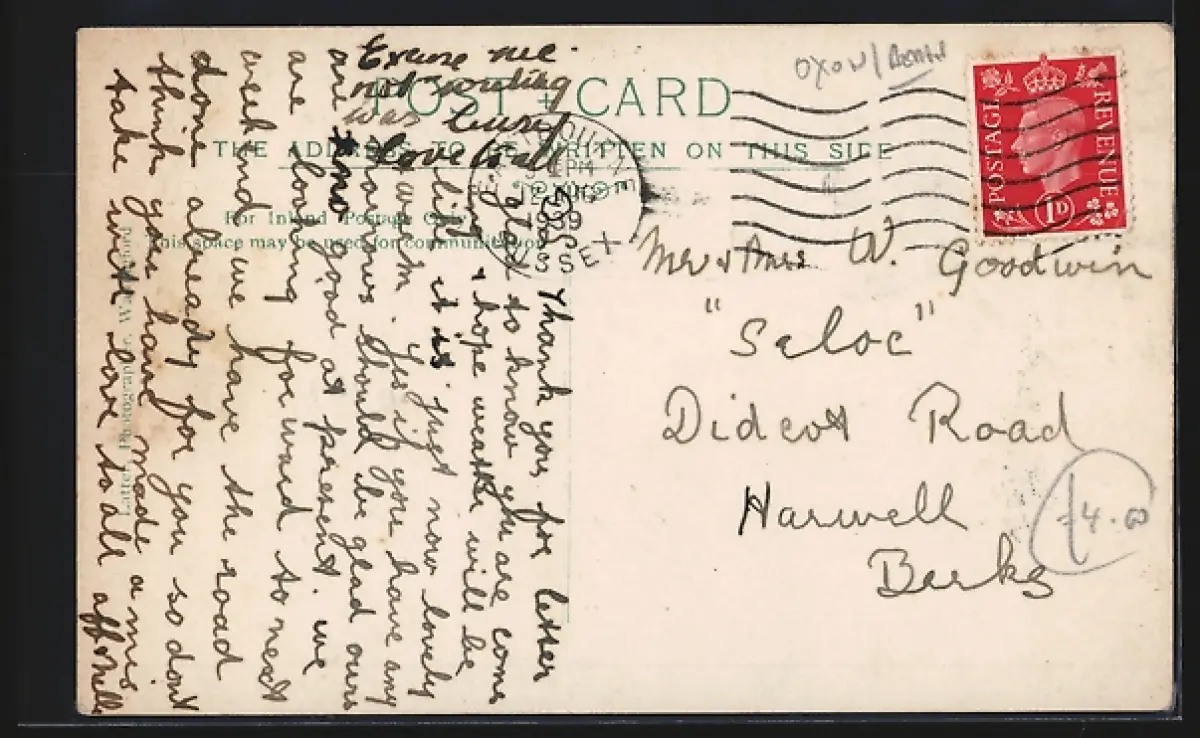 POST CARD
THE ADDRESS TO BE WRITTEN ON THIS SIDE
For Inland Postage Only
this space may be used for communication
OXON/
POSTAGE REVENUE
1D
1939
Mr & Mrs W. Goodwin
"Seloc"
Didcot Road
Harwell
Berks
£4.00
Excuse me
not sending
was busy
love to all
Thank you for letter
glad to know you are
& hope weather will be
like it is just now lovely
warm. Yes if you have any
marrows should be glad ours
are no good at present. we
are looking forward to next
week end we have the road
done already for you so dont
think you have made a mis
take with love to all aff Nell